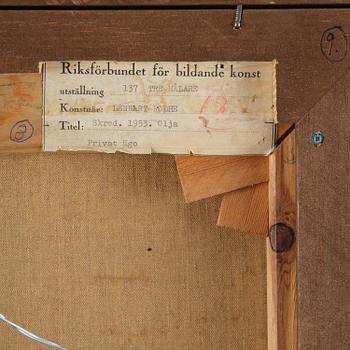 Riksförbundet för bildande konst
utställning 137 TRE MÅLARE
Konstnär: LENNART RODHE
Titel: Skred. 1953. Olja
Privat ägo
18
2
9.